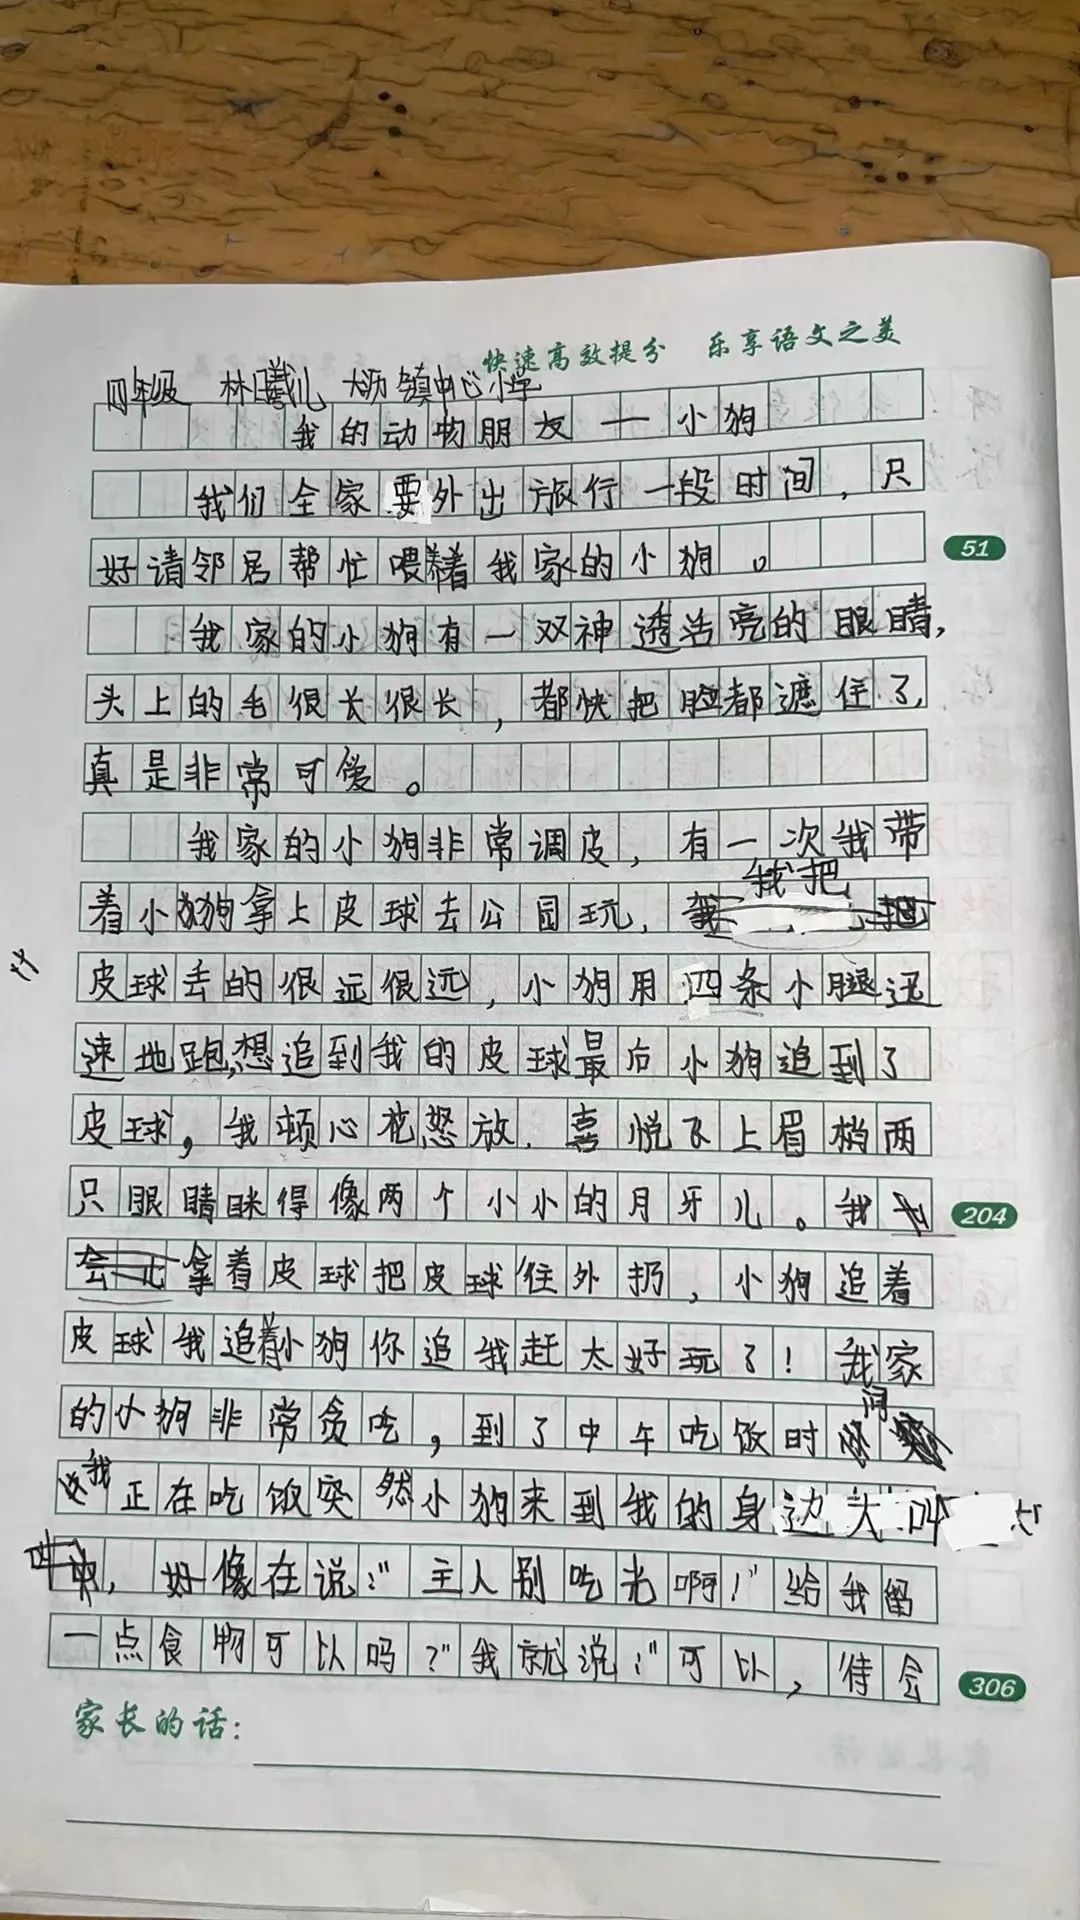 快速高效提分 乐享语文之美
四年级 林曦儿 大沥镇中心小学
我的动物朋友一小狗
我们全家要外出旅行一段时间,只
好请邻居帮忙喂养着我家的小狗。
51
我家的小狗有一双神透浩亮的眼睛,
头上的毛很长很长,都快把脸都遮住了,
真是非常可爱。
我家的小狗非常调皮,有一次我带
我把
着小狗拿上皮球去公园玩,
皮球丢的很远很远,小狗用四条小腿迅
速地跑,想追到我的皮球最后小狗追到了
皮球,我顿心花怒放.喜悦飞上眉梢两
只眼睛眯得像两个小小的月牙儿。我
204
拿着皮球把皮球往外扔,小狗追着
皮球我追着小狗你追我赶太好玩了!我家
的小狗非常贪吃,到了中午吃饭时间
我正在吃饭突然小狗来到我的身边大叫大
叫,好像在说:"主人别吃光啊!"给我留
一点食物可以吗?"我就说:"可以,待会
306
家长的话: